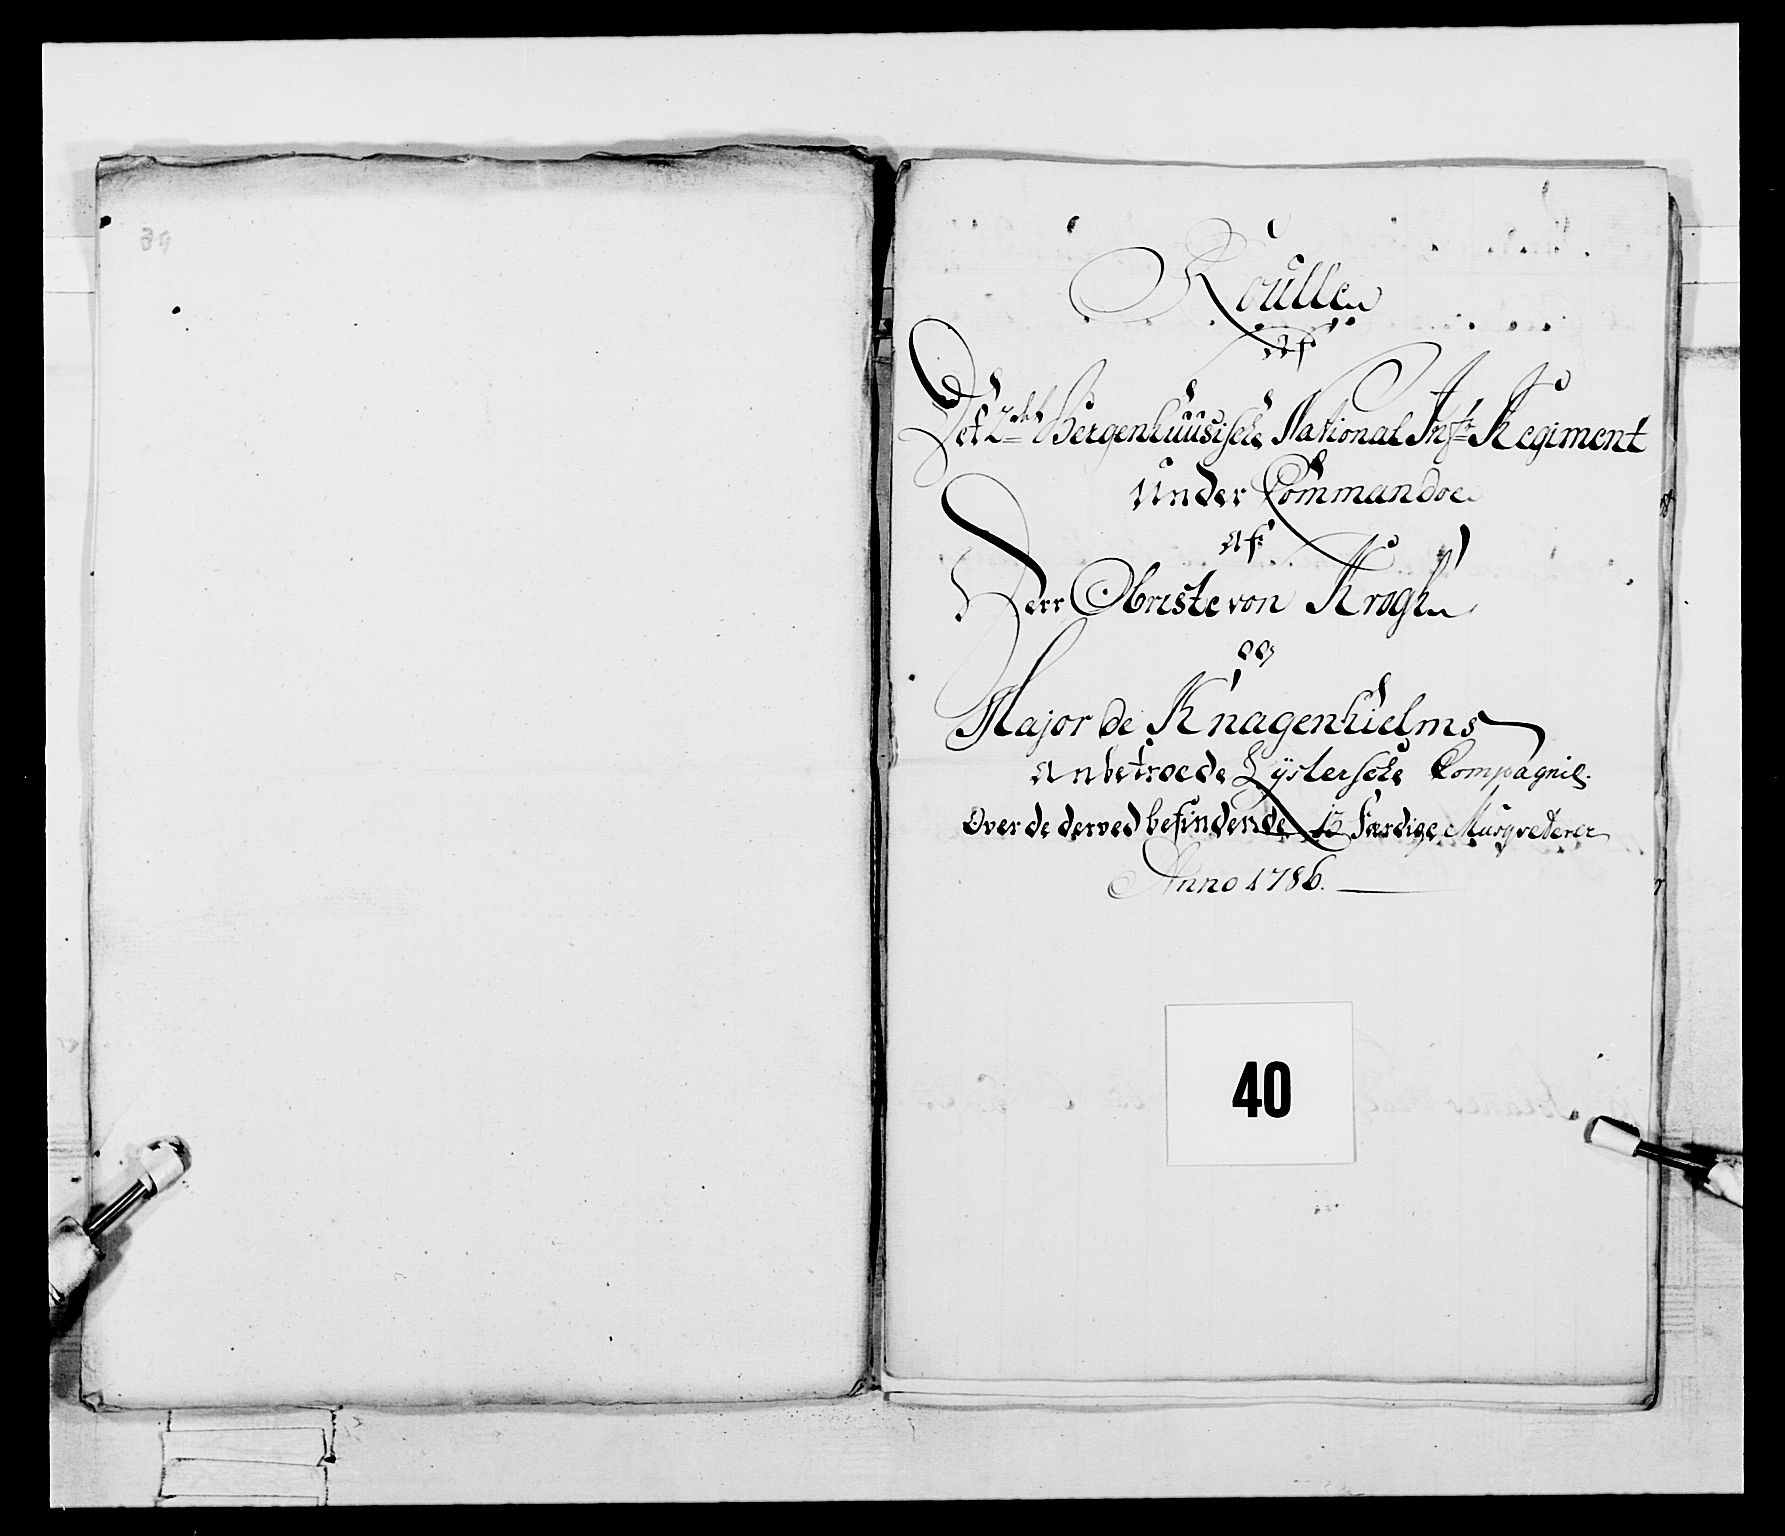 Roullen
Af
Det 2det Bergenhuusische National Inf: Regiment
Under Commandoe
Af
Herr Obriste von Krogh
og
Major de Knagenhielms
Anbetroede Lysterske Compagnie
Over de derved befindende færdige Musqveterer
Anno 1786.
40